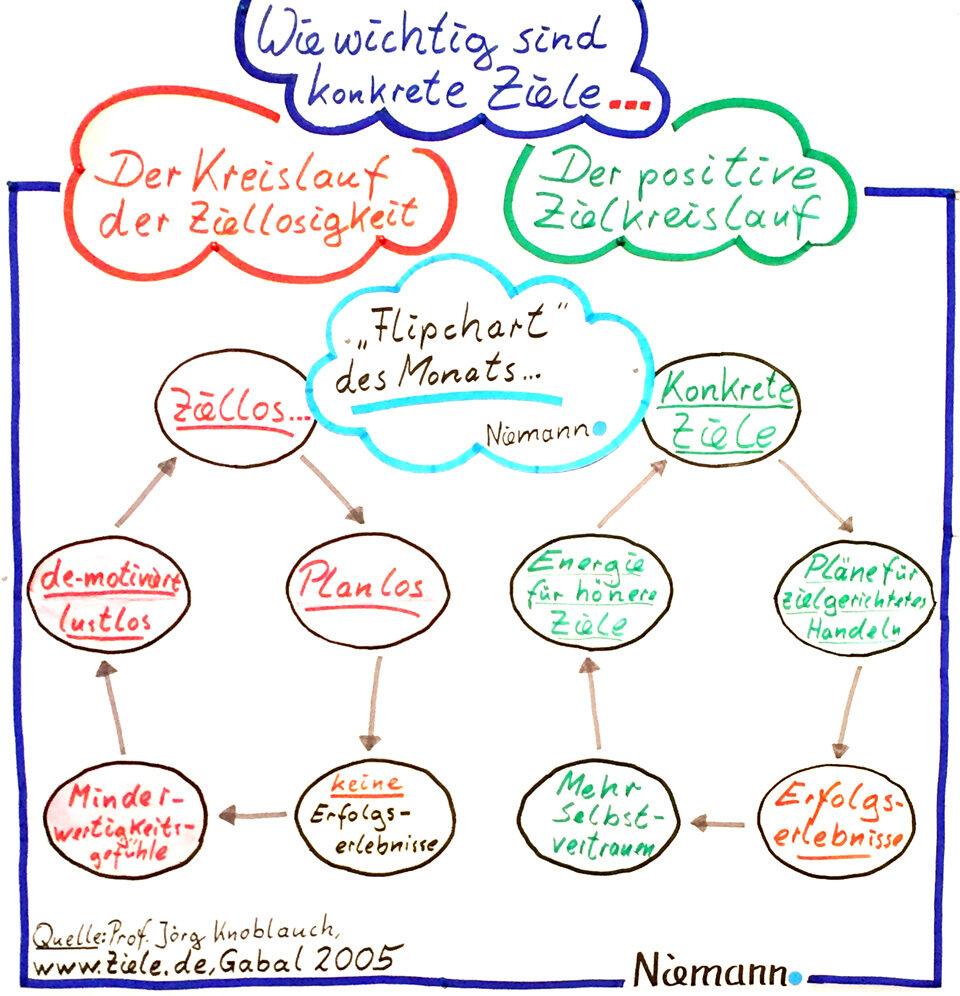 Wie wichtig sind
konkrete Ziele...
Der Kreislauf
der Ziellosigkeit
Der positive
Zielkreislauf
„Flipchart"
des Monats...
Niemann
Ziellos...
Planlos
keine
Erfolgs-
erlebnisse
Minder-
wertigkeits-
gefühle
de-motiviert
lustlos
Konkrete
Ziele
Pläne für
zielgerichtetes
Handeln
Erfolgs-
erlebnisse
Mehr
Selbst-
vertrauen
Energie
für höhere
Ziele
Quelle: Prof. Jörg Knoblauch,
www.Ziele.de, Gabal 2005
Niemann